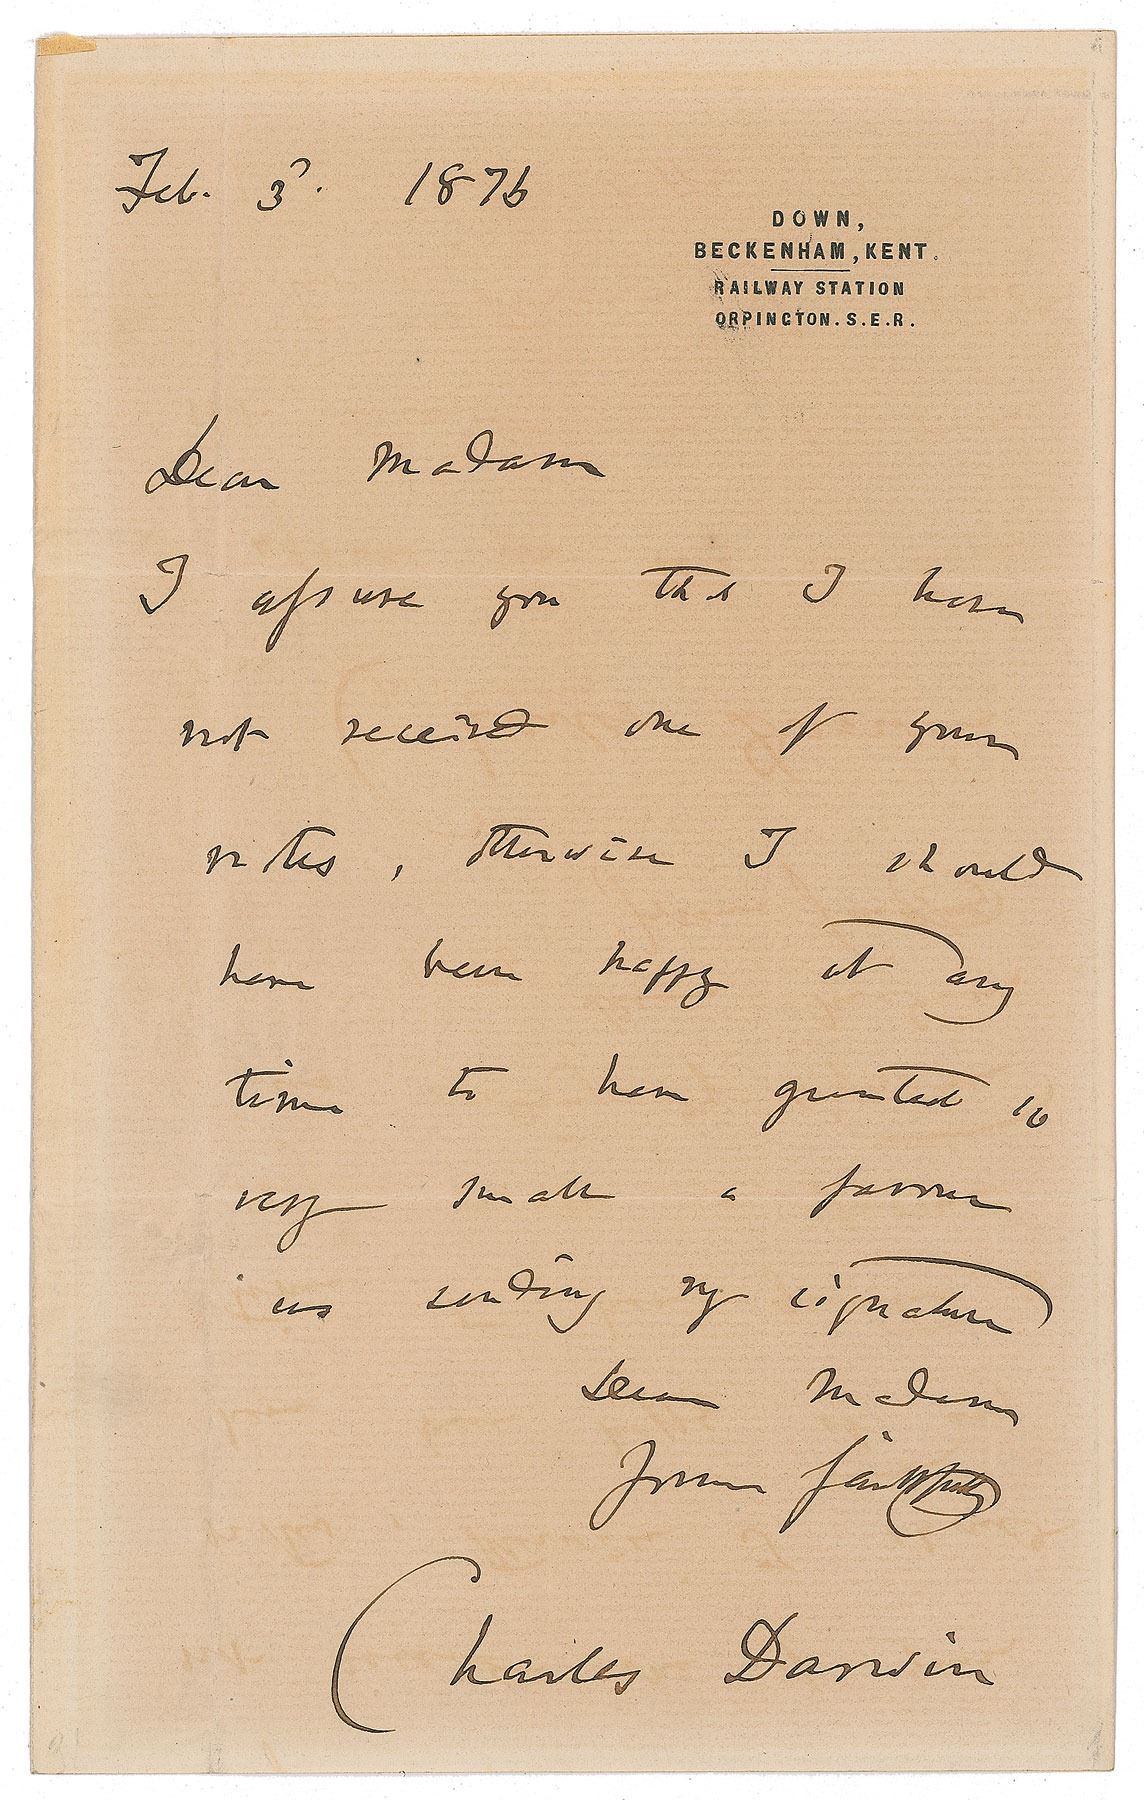 Feb. 3ᵈ. 1876
DOWN,
BECKENHAM, KENT.
RAILWAY STATION
ORPINGTON. S.E.R.
Dear Madam
I assure you that I have
not received one of your
notes, otherwise I should
have been happy at any
time to have granted so
very small a favour
as sending my signature
Dear Madam
Yours faithfully
Charles Darwin